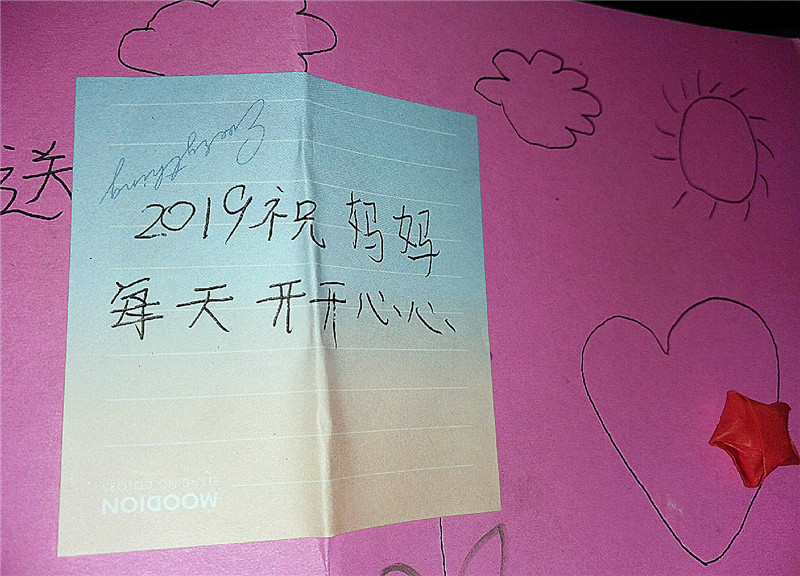 送
Everything
2019祝妈妈
每天开开心心
MOODION
BLENDING COLORS